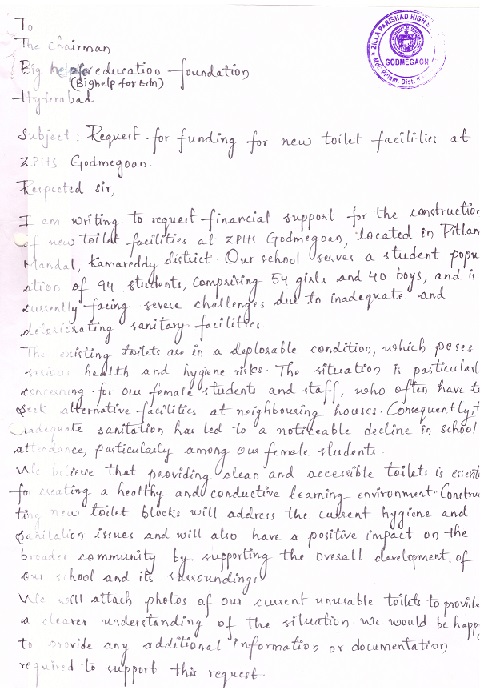 To
The Chairman
Big help for education foundation
(Bighelp for Edn)
Hyderabad.
ZILLA PARISHAD HIGH S
GODMEGAON
Subject: Request for funding for new toilet facilities at
ZPHS Godmegoan.
Respected sir,
I am writing to request financial support for the construction
of new toilet facilities at ZPHS Godmegoan, located in Pitlam
Mandal, Kamareddy district. Our school serves a student popu
ation of 94 students, comprising 54 girls and 40 boys, and is
currently facing severe challenges due to inadequate and
deteriorating sanitary facilities.
The existing toilets are in a deplorable condition, which poses
serious health and hygiene risks. The situation is particularl
concerning for our female students and staff, who often have to
seek alternative facilities at neighbousing houses. Consequently, t
inadequate sanitation has led to a noticeable decline in school
attendance, particularly among our female students.
We believe that providing clean and accessible toilets is essenti
for creating a healthy and conductive learning environment. Constru
ting new toilet blocks will address the current hygiene and
sanitation issues and will also have a positive impact on the
broader community by supporting the overall development of
our school and its surroundings
We will attach photos of our current unusable toilets to provide
a clearer understanding of the situation we would be happ
to provide any additional information or documentation
required to support this request.